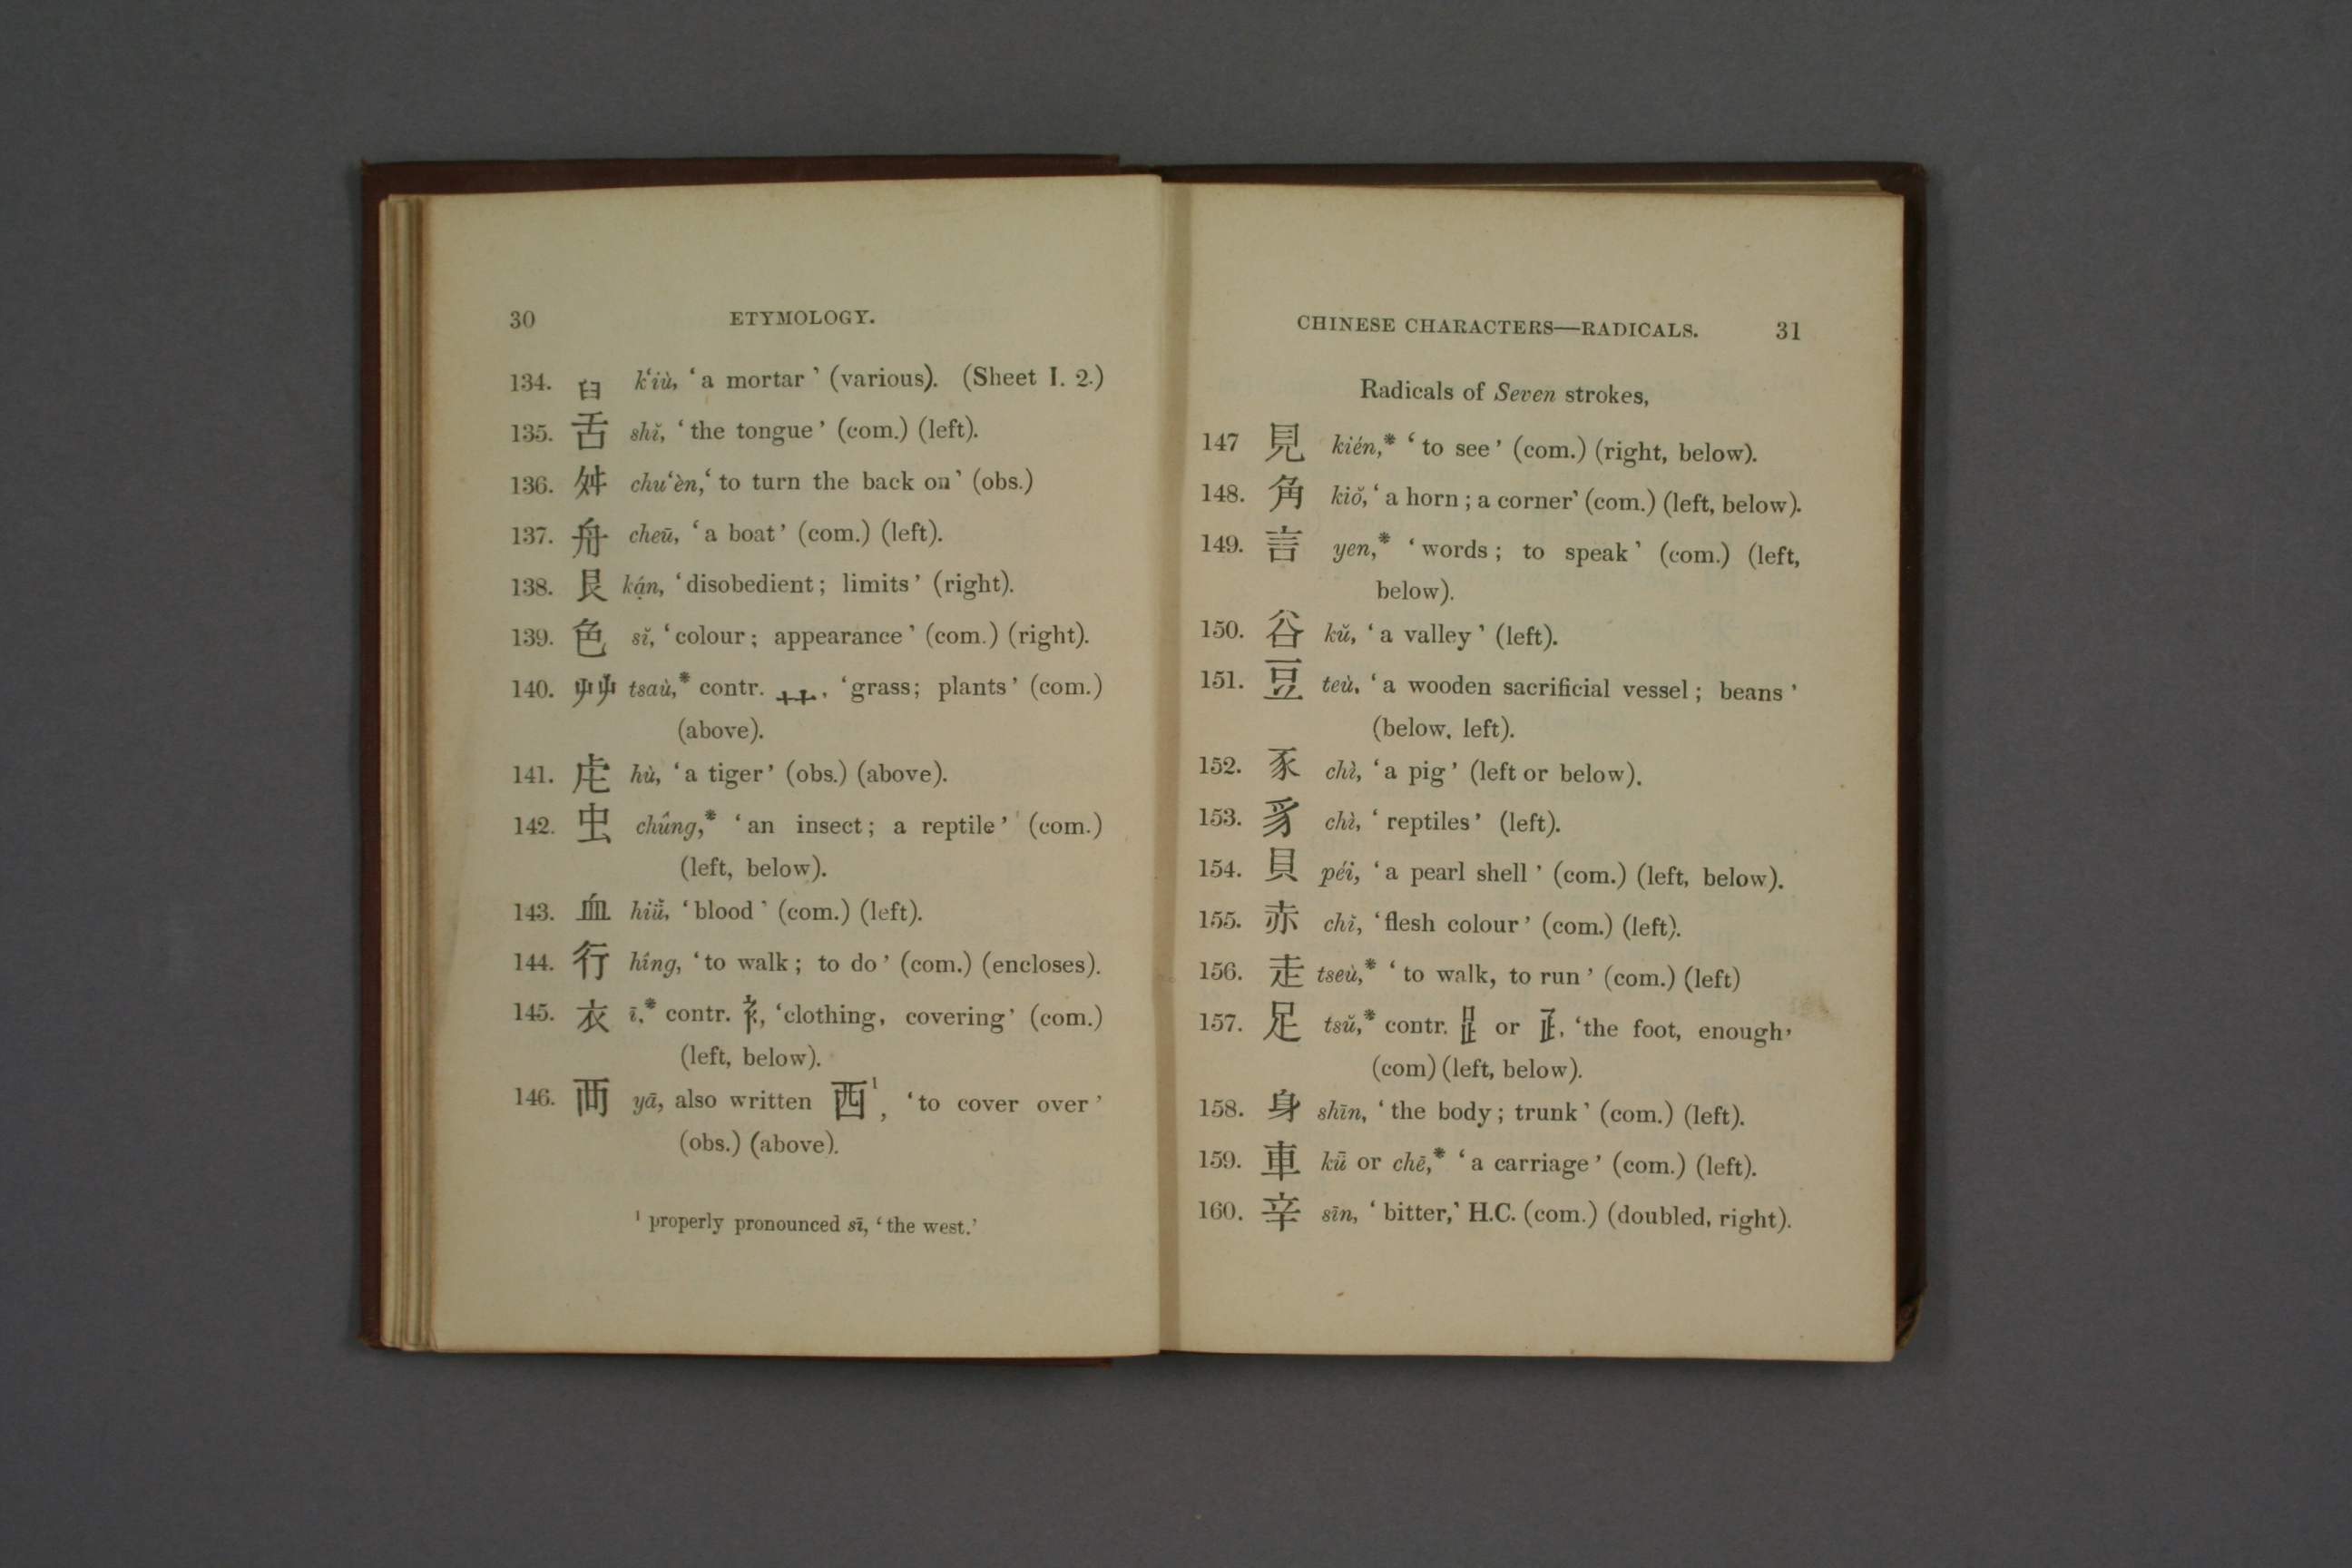 30 ETYMOLOGY.
134. 臼 k‘iù, ‘a mortar’ (various). (Sheet I. 2.)
135. 舌 shĭ, ‘the tongue’ (com.) (left).
136. 舛 chu‘èn,‘to turn the back on’ (obs.)
137. 舟 cheū, ‘a boat’ (com.) (left).
138. 艮 kạ́n, ‘disobedient; limits’ (right).
139. 色 sĭ, ‘colour; appearance’ (com.) (right).
140. 艸 tsaù,* contr. 艹, ‘grass; plants’ (com.)
(above).
141. 虍 hù, ‘a tiger’ (obs.) (above).
142. 虫 chûng,* ‘an insect; a reptile’ (com.)
(left, below).
143. 血 hiü̆, ‘blood’ (com.) (left).
144. 行 hîng, ‘to walk; to do’ (com.) (encloses).
145. 衣 ī,* contr. 衤, ‘clothing, covering’ (com.)
(left, below).
146. 襾 yā, also written 西¹, ‘to cover over’
(obs.) (above).
¹ properly pronounced sī, ‘the west.’
CHINESE CHARACTERS—RADICALS. 31
Radicals of Seven strokes,
147 見 kién,* ‘to see’ (com.) (right, below).
148. 角 kiŏ, ‘a horn; a corner’ (com.) (left, below).
149. 言 yen,* ‘words; to speak’ (com.) (left,
below).
150. 谷 kŭ, ‘a valley’ (left).
151. 豆 teù, ‘a wooden sacrificial vessel; beans’
(below, left).
152. 豕 chì, ‘a pig’ (left or below).
153. 豸 chì, ‘reptiles’ (left).
154. 貝 péi, ‘a pearl shell’ (com.) (left, below).
155. 赤 chĭ, ‘flesh colour’ (com.) (left).
156. 走 tseù,* ‘to walk, to run’ (com.) (left)
157. 足 tsŭ,* contr. ⻊ or 𤴔, ‘the foot, enough’
(com) (left, below).
158. 身 shīn, ‘the body; trunk’ (com.) (left).
159. 車 kǖ or chē,* ‘a carriage’ (com.) (left).
160. 辛 sīn, ‘bitter,’ H.C. (com.) (doubled, right).